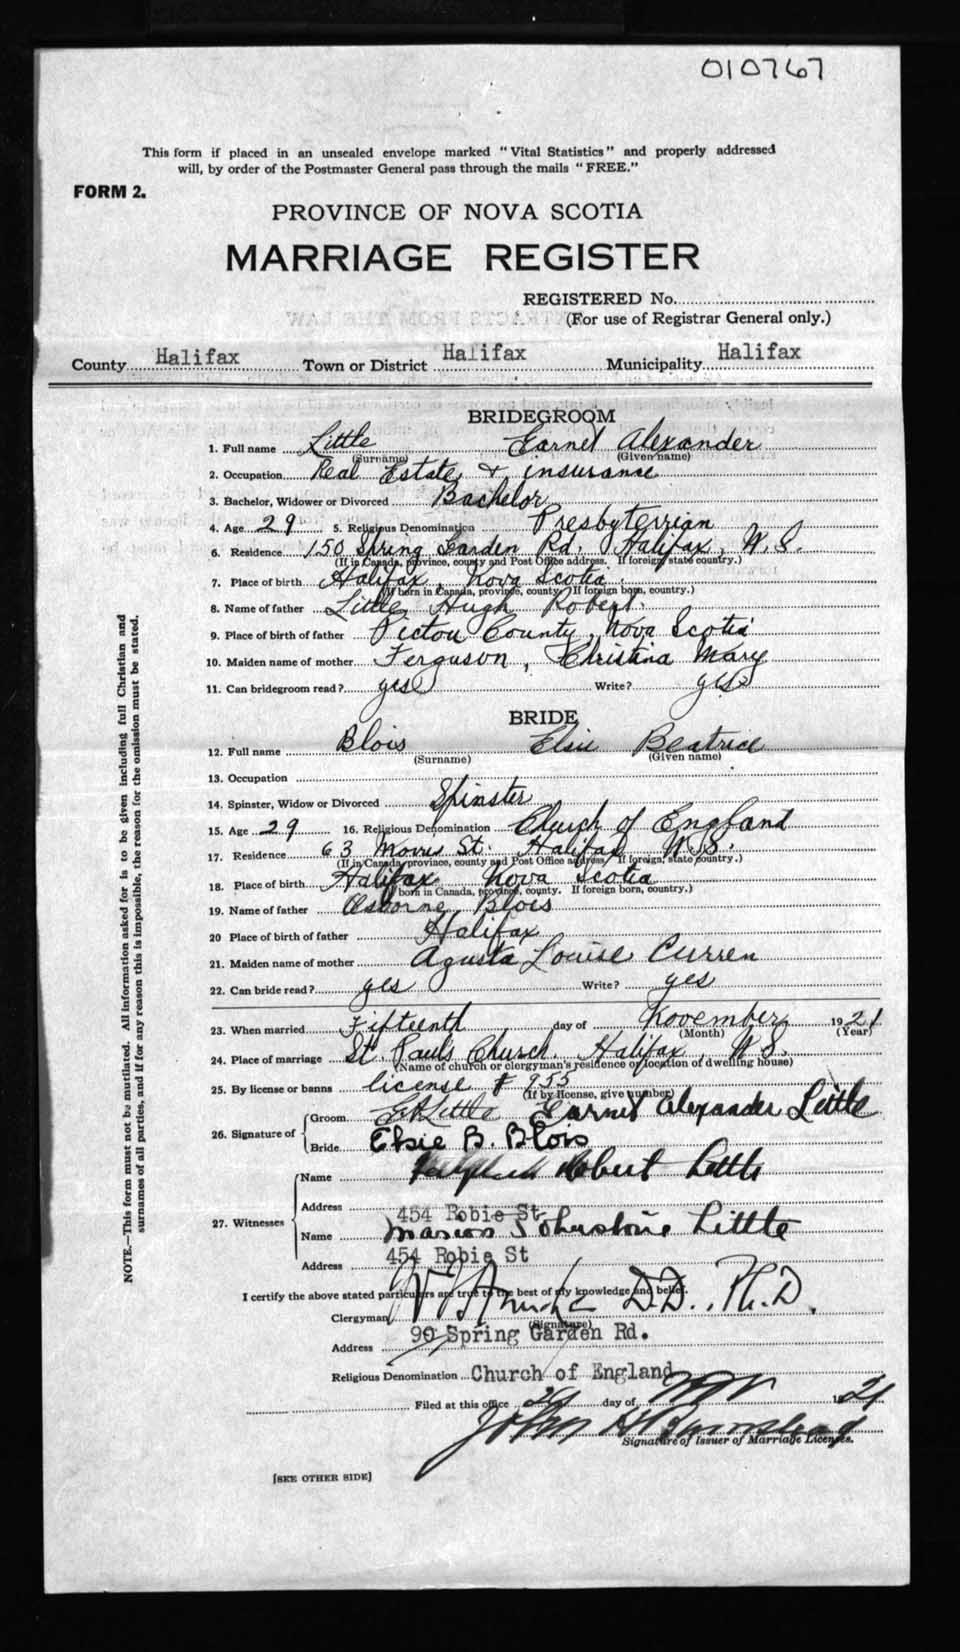 010767
This form if placed in an unsealed envelope marked "Vital Statistics" and properly addressed
will, by order of the Postmaster General pass through the mails "FREE."
FORM 2.
PROVINCE OF NOVA SCOTIA
MARRIAGE REGISTER
REGISTERED No.
(For use of Registrar General only.)
County Halifax Town or District Halifax Municipality Halifax
BRIDEGROOM
1. Full name Little Garnet Alexander
(Surname) (Given name)
2. Occupation Real Estate & insurance
3. Bachelor, Widower or Divorced Bachelor
4. Age 29 5. Religious Denomination Presbyterrian
6. Residence 150 Spring Garden Rd. Halifax, N.S.
(If in Canada, province, county and Post Office address. If foreign, state country.)
7. Place of birth Halifax, Nova Scotia
(If born in Canada, province, county. If foreign born, country.)
8. Name of father Little, Hugh Robert.
9. Place of birth of father Pictou County, Nova Scotia
10. Maiden name of mother Ferguson, Christina Mary
11. Can bridegroom read? yes Write? yes
BRIDE
12. Full name Blois Elsie Beatrice
(Surname) (Given name)
13. Occupation
14. Spinster, Widow or Divorced Spinster
15. Age 29 16. Religious Denomination Church of England
17. Residence 63 Morris St. Halifax N.S.
(If in Canada, province, county and Post Office address. If foreign, state country.)
18. Place of birth Halifax Nova Scotia
born in Canada, province, county. If foreign born, country.)
19. Name of father Osborne Blois
20 Place of birth of father Halifax
21. Maiden name of mother Agusta Louise Curren
22. Can bride read? yes Write? yes
23. When married Fifteenth day of November 1921
(Month) (Year)
24. Place of marriage St. Paul's Church. Halifax, N.S.
(Name of church or clergyman's residence or location of dwelling house)
25. By license or banns license # 955
(If by license, give number)
26. Signature of
Groom Garnet Alexander Little
Bride Elsie B. Blois
27. Witnesses
Name Robert Little
Address 454 Robie St
Name Marion Johnstone Little
Address 454 Robie St
I certify the above stated particulars are true to the best of my knowledge and belief.
Clergyman D.D., Ph.D.
(Signature)
Address 90 Spring Garden Rd.
Religious Denomination Church of England
Filed at this office day of Nov 1921
John
Signature of Issuer of Marriage Licenses.
[SEE OTHER SIDE]
NOTE.—This form must not be mutilated. All information asked for is to be given including full Christian and
surnames of all parties, and if for any reason this is impossible, the reason for the omission must be stated.